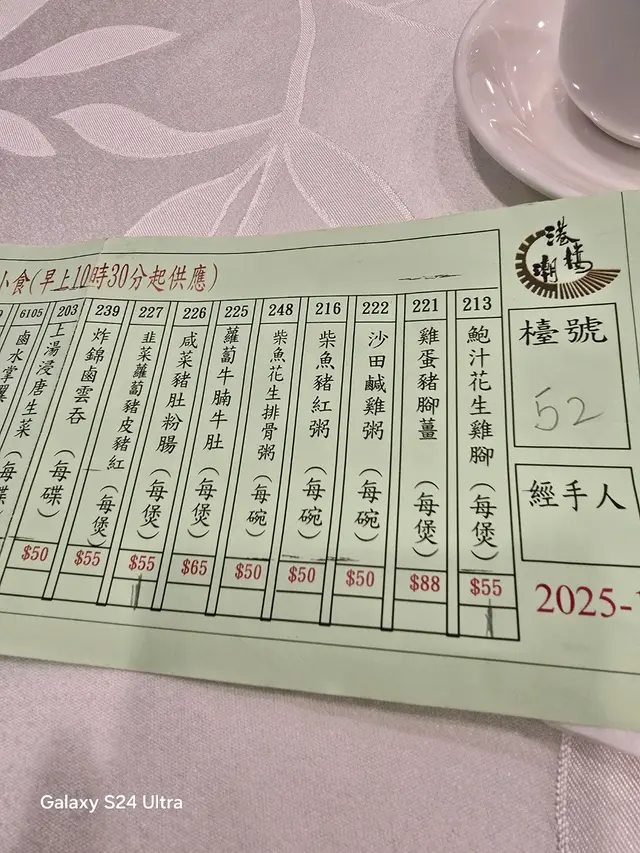 小食(早上10時30分起供應)
213
鮑汁花生雞腳(每煲)
$55
221
雞蛋豬腳薑(每煲)
$88
222
沙田鹹雞粥(每碗)
$50
216
柴魚豬紅粥(每碗)
$50
248
柴魚花生排骨粥(每碗)
$50
225
蘿蔔牛腩牛肚(每煲)
$65
226
咸菜豬肚粉腸(每煲)
$55
227
韭菜蘿蔔豬皮豬紅(每煲)
$55
239
炸錦鹵雲吞(每碟)
$50
203
上湯浸唐生菜(每碟
6105
鹵水掌翼
檯號
52
經手人
2025-
Galaxy S24 Ultra